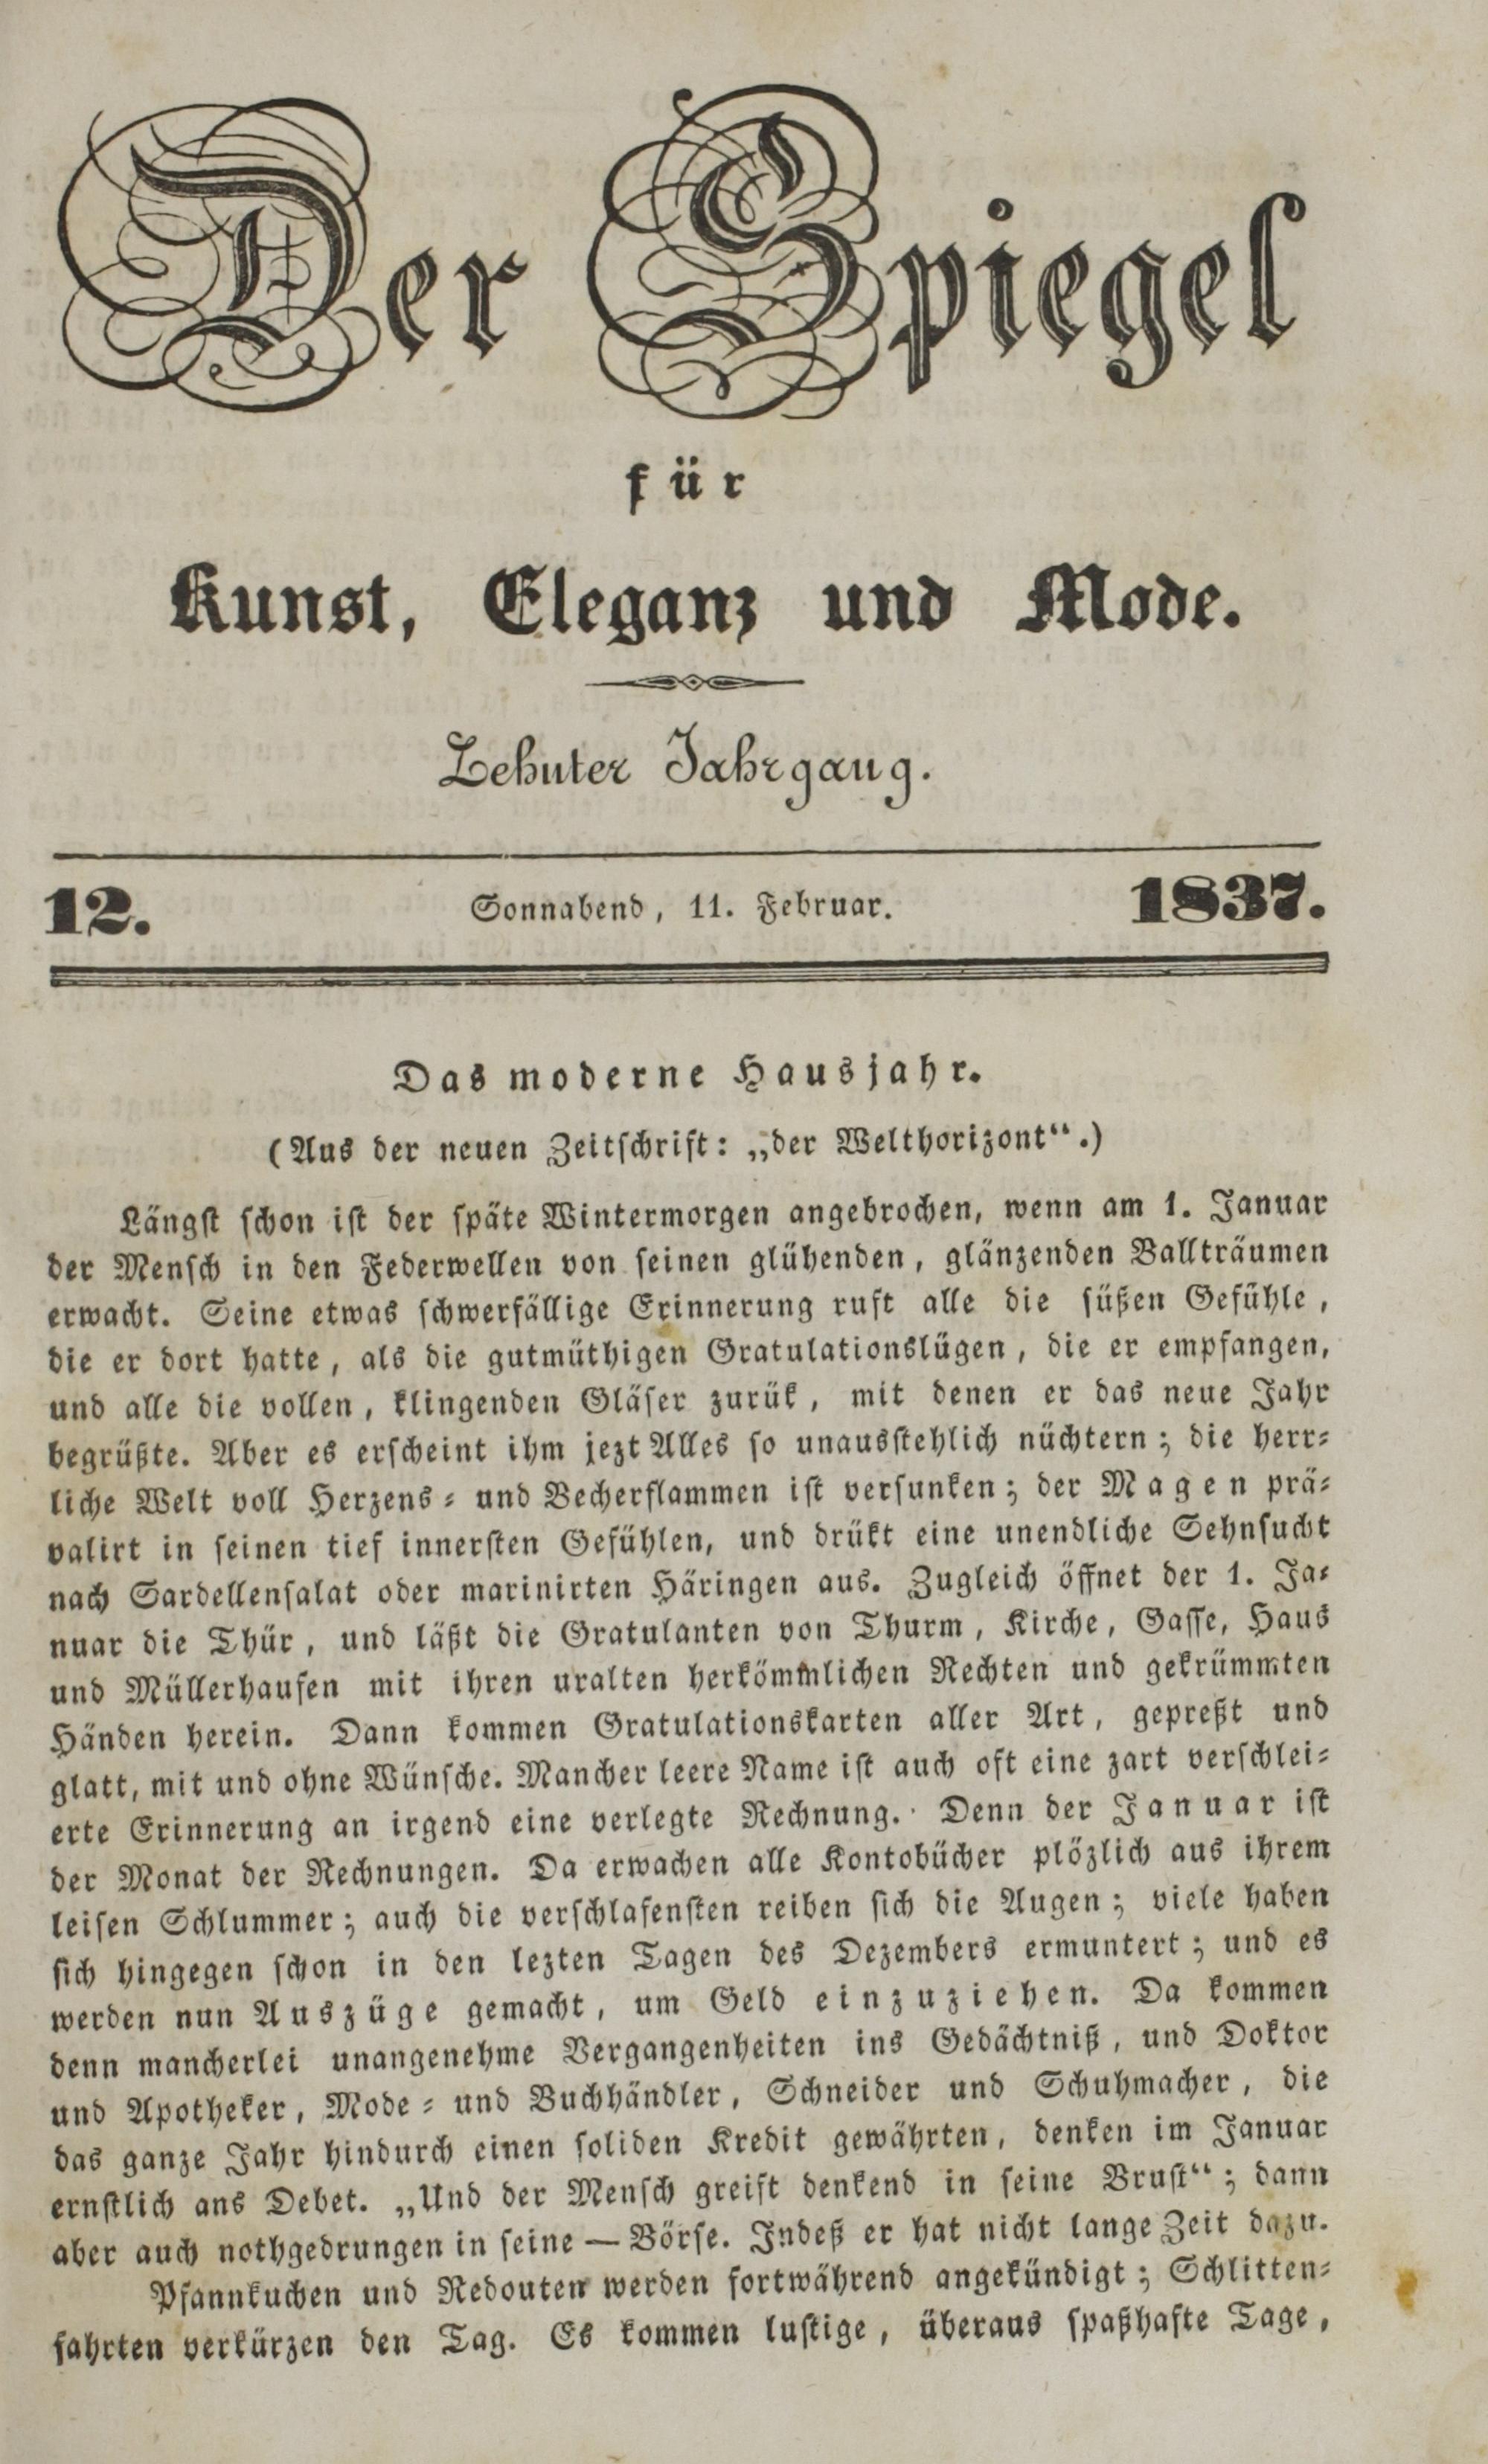 Der Spiegel
für
Kunst, Eleganz und Mode.
Zehnter Jahrgang.
12. Sonnabend, 11. Februar. 1837.
Das moderne Hausjahr.
(Aus der neuen Zeitschrift: „der Welthorizont“.)
Längst schon ist der späte Wintermorgen angebrochen, wenn am 1. Januar
der Mensch in den Federwellen von seinen glühenden, glänzenden Ballträumen
erwacht. Seine etwas schwerfällige Erinnerung ruft alle die süßen Gefühle,
die er dort hatte, als die gutmüthigen Gratulationslügen, die er empfangen,
und alle die vollen, klingenden Gläser zurük, mit denen er das neue Jahr
begrüßte. Aber es erscheint ihm jezt Alles so unausstehlich nüchtern; die herr-
liche Welt voll Herzens- und Becherflammen ist versunken; der Magen prä-
valirt in seinen tief innersten Gefühlen, und drükt eine unendliche Sehnsucht
nach Sardellensalat oder marinirten Häringen aus. Zugleich öffnet der 1. Ja-
nuar die Thür, und läßt die Gratulanten von Thurm, Kirche, Gasse, Haus
und Müllerhaufen mit ihren uralten herkömmlichen Rechten und gekrümmten
Händen herein. Dann kommen Gratulationskarten aller Art, gepreßt und
glatt, mit und ohne Wünsche. Mancher leere Name ist auch oft eine zart verschlei-
erte Erinnerung an irgend eine verlegte Rechnung. Denn der Januar ist
der Monat der Rechnungen. Da erwachen alle Kontobücher plözlich aus ihrem
leisen Schlummer; auch die verschlafensten reiben sich die Augen; viele haben
sich hingegen schon in den lezten Tagen des Dezembers ermuntert; und es
werden nun Auszüge gemacht, um Geld einzuziehen. Da kommen
denn mancherlei unangenehme Vergangenheiten ins Gedächtniß, und Doktor
und Apotheker, Mode- und Buchhändler, Schneider und Schuhmacher, die
das ganze Jahr hindurch einen soliden Kredit gewährten, denken im Januar
ernstlich ans Debet. „Und der Mensch greift denkend in seine Brust“; dann
aber auch nothgedrungen in seine — Börse. Indeß er hat nicht lange Zeit dazu.
Pfannkuchen und Redouten werden fortwährend angekündigt; Schlitten-
fahrten verkürzen den Tag. Es kommen lustige, überaus spaßhafte Tage,